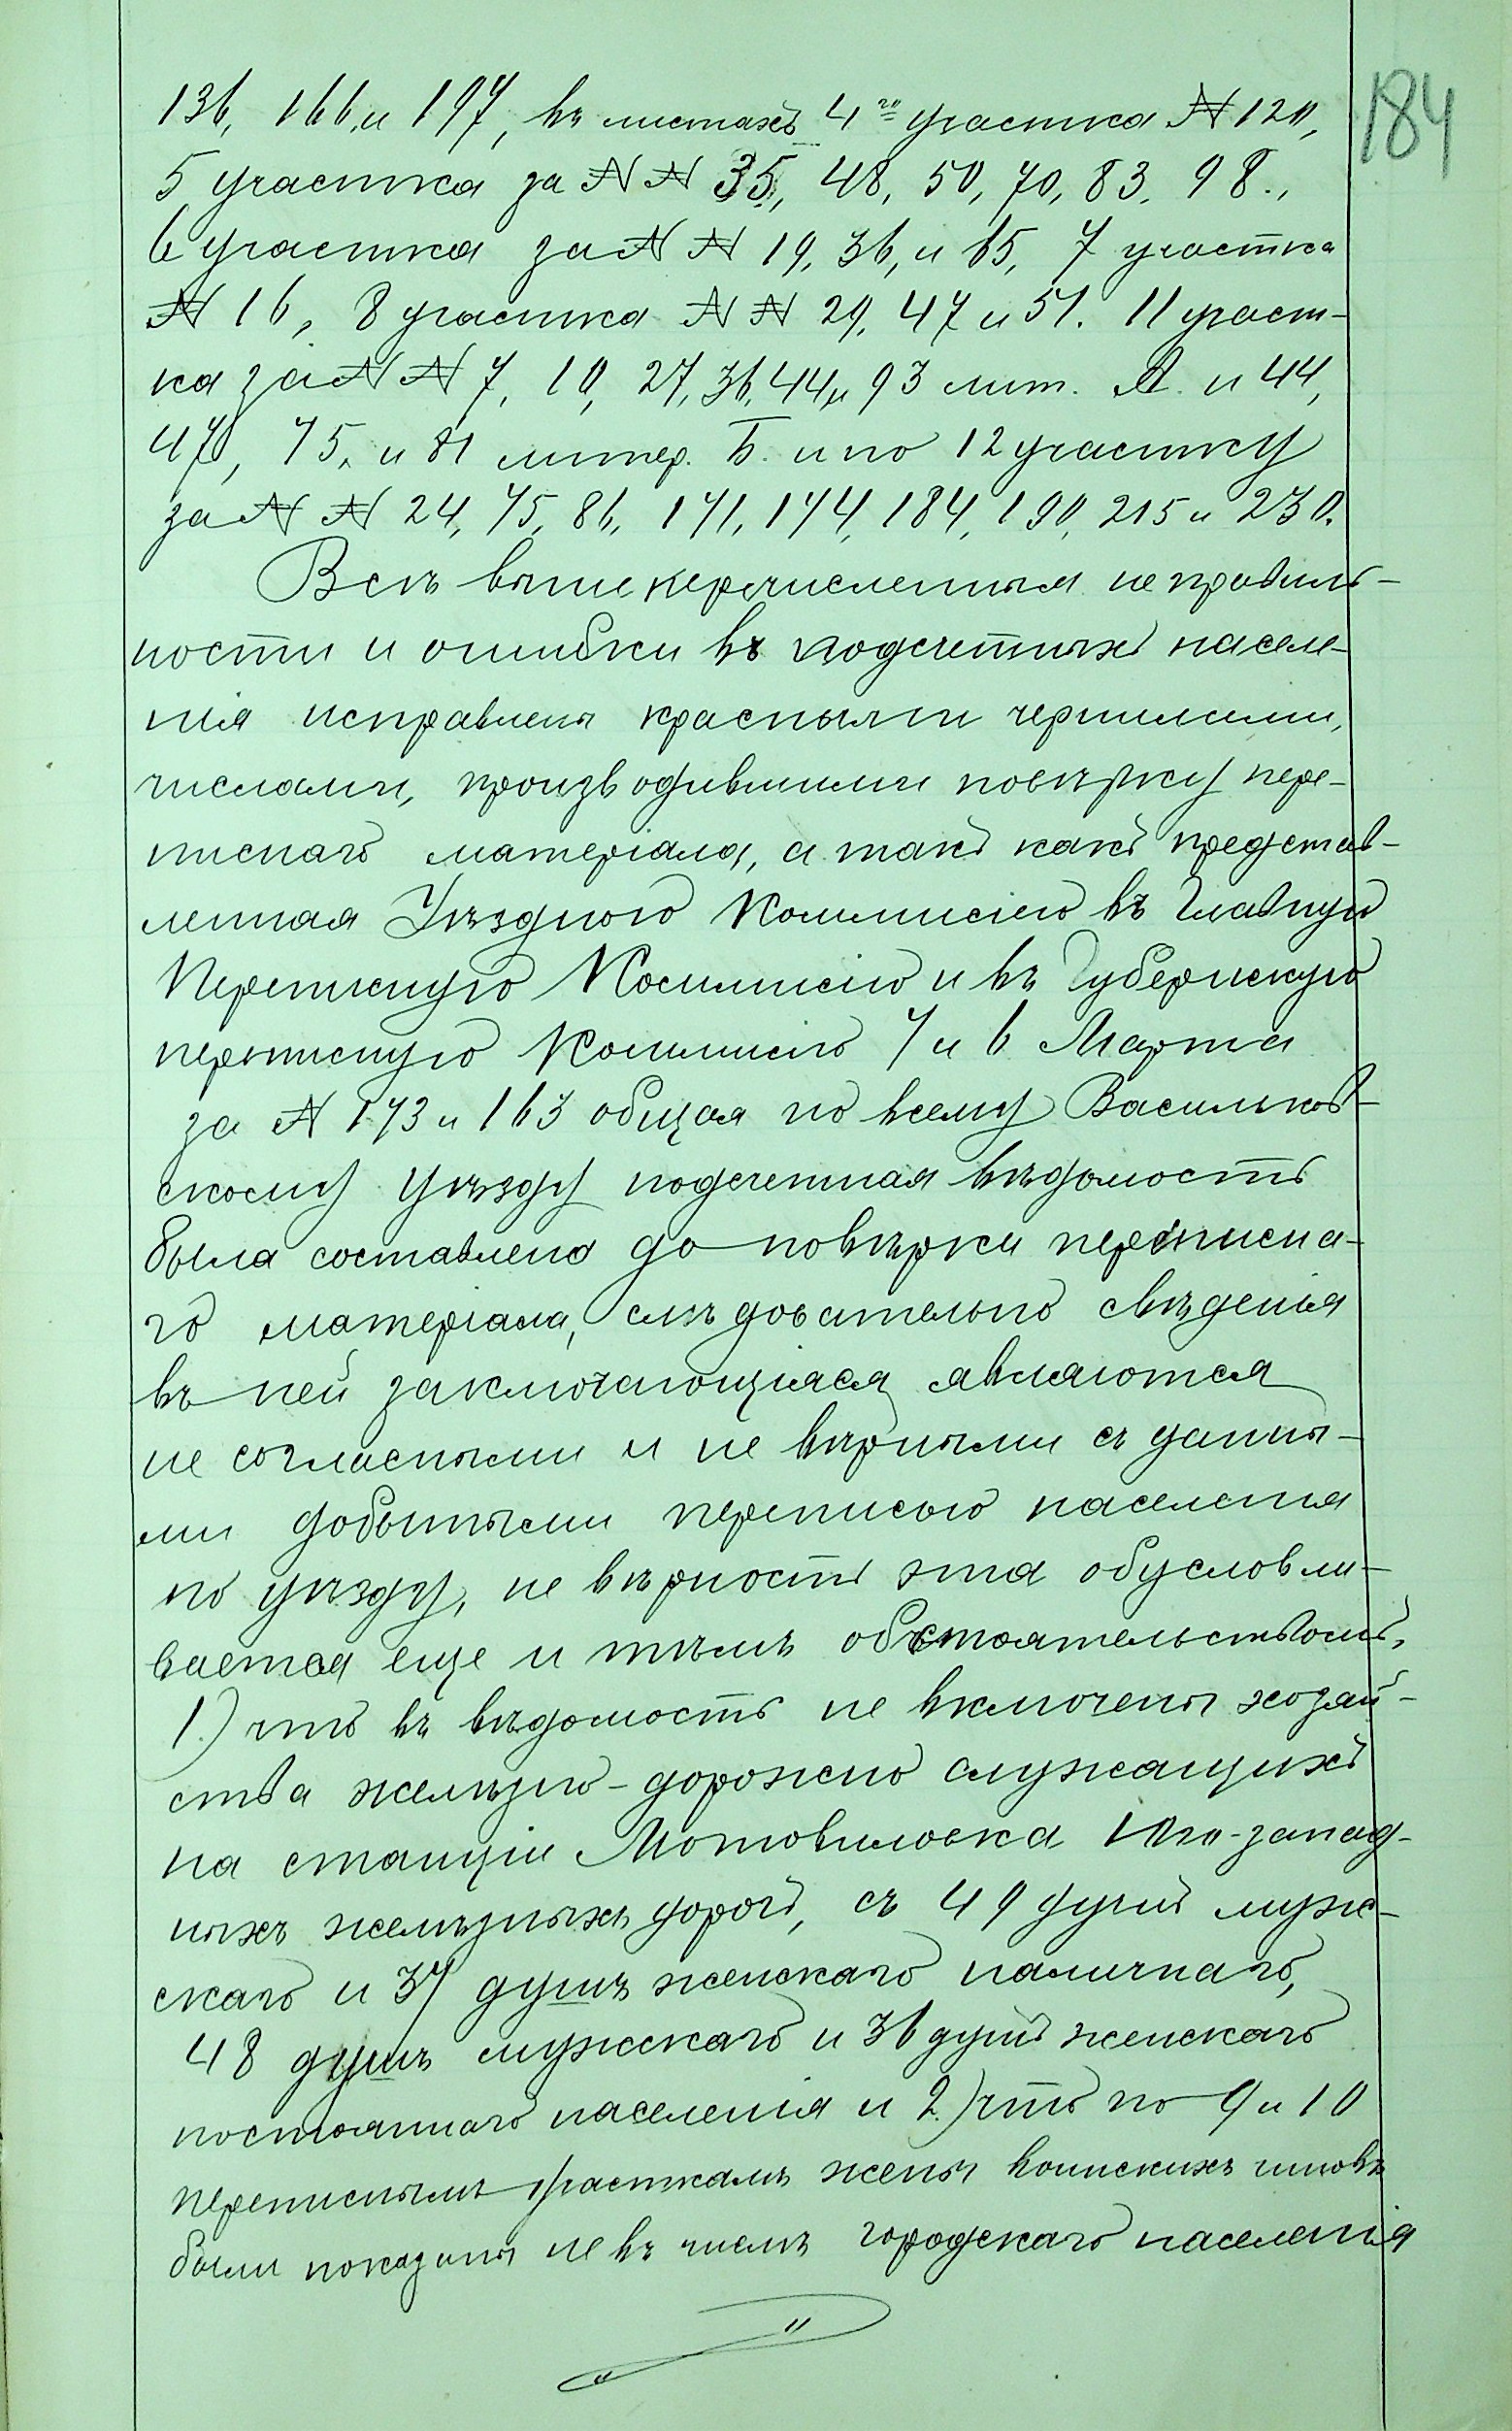 184
136, 166, и 197, въ листахъ 4го участка № 120,
5 участка за №№ 35, 48, 50, 70, 83, 98.,
6 участка за №№ 19, 36, и 65, 7 участка
№ 16, 8 участка №№ 29, 47 и 51. 11 участ-
ка за №№ 7, 10, 27, 36, 44, и 93 лит. А. и 44,
47, 75, и 81 литер. Б. и по 12 участку
за №№ 24, 75, 86, 171, 174, 184, 190, 215 и 230.
Всѣ выше перечисленныя не правиль-
ности и ошибки въ подсчетныхъ населе-
нія исправлены красными чернилами,
числами, производившими повѣрку пере-
писнаго матеріала, а такъ какъ представ-
ленная Уѣздною Коммисіею въ Главную
Переписную Коммисію и въ Губернскую
переписную Коммисію 7 и 6 Марта
за № 173 и 163 общая по всему Васильков-
скому уѣзду подсчетная вѣдомость
была составлена до повѣрки переписна-
го матеріала, слѣдовательно свѣденія
въ ней заключающіяся, являются
не согласными и не вѣрными съ данны-
ми добытыми переписью населенія
по уѣзду, не вѣрность эта обусловли-
вается еще и тѣмъ обстоятельствомъ,
1.) что въ вѣдомость не включены хозяй-
ства желѣзно-дорожно служащихъ
на станціи Мотовиловка Юго-запад-
ныхъ желѣзныхъ дорогъ, съ 49 душъ муж-
скаго и 37 душъ женскаго наличнаго,
48 душъ мужскаго и 36 душъ женскаго
постояннаго населенія и 2.) что по 9 и 10
переписнымъ участкамъ жены воинскихъ чиновъ
были показаны не въ числѣ городскаго населенія